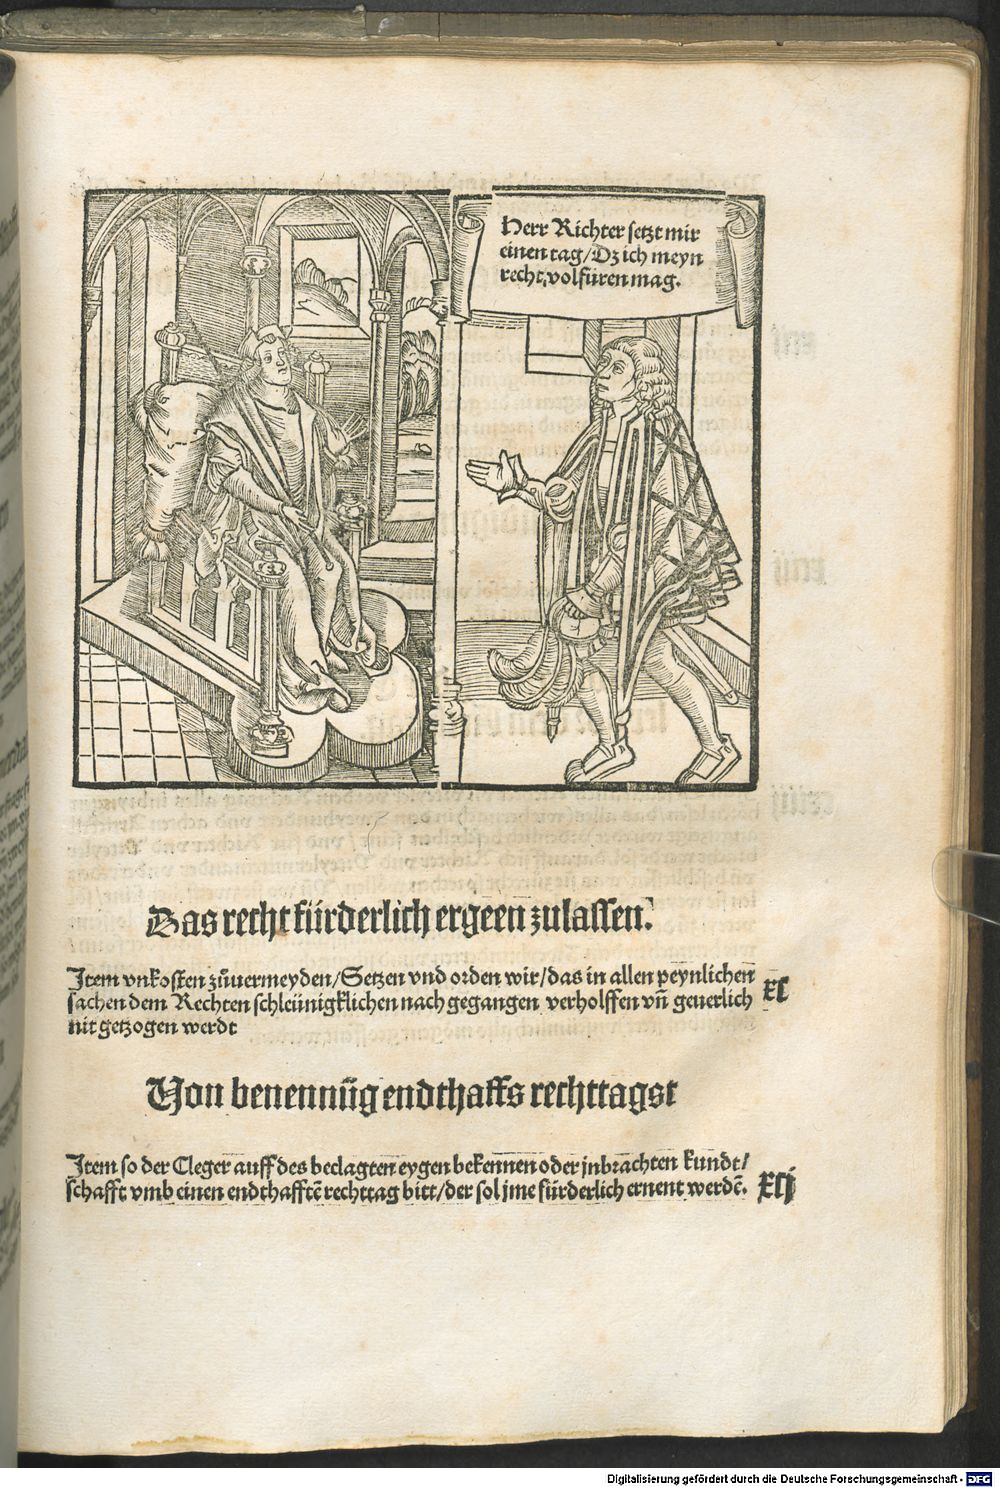 Herr Richter setzt mir
einen tag/Dz ich meyn
recht, volfüren mag.
Das recht fürderlich ergeen zulassen.
Item vnkosten zůuermeyden/Setzen vnd orden wir/das in allen peynlichen̄
sachen dem Rechten schleünigklichen nach gegangen verholffen vn̄ geuerlich
nit getzogen werdt
xc
Von benennūg endthaffs rechttagst
Item so der Cleger auff des beclagten eygen bekennen oder jnbrachten kundt/
schafft vmb einen endthafftē rechttag bitt/der sol jme fürderlich ernent werdē.
xcj
Digitalisierung gefördert durch die Deutsche Forschungsgemeinschaft - DFG